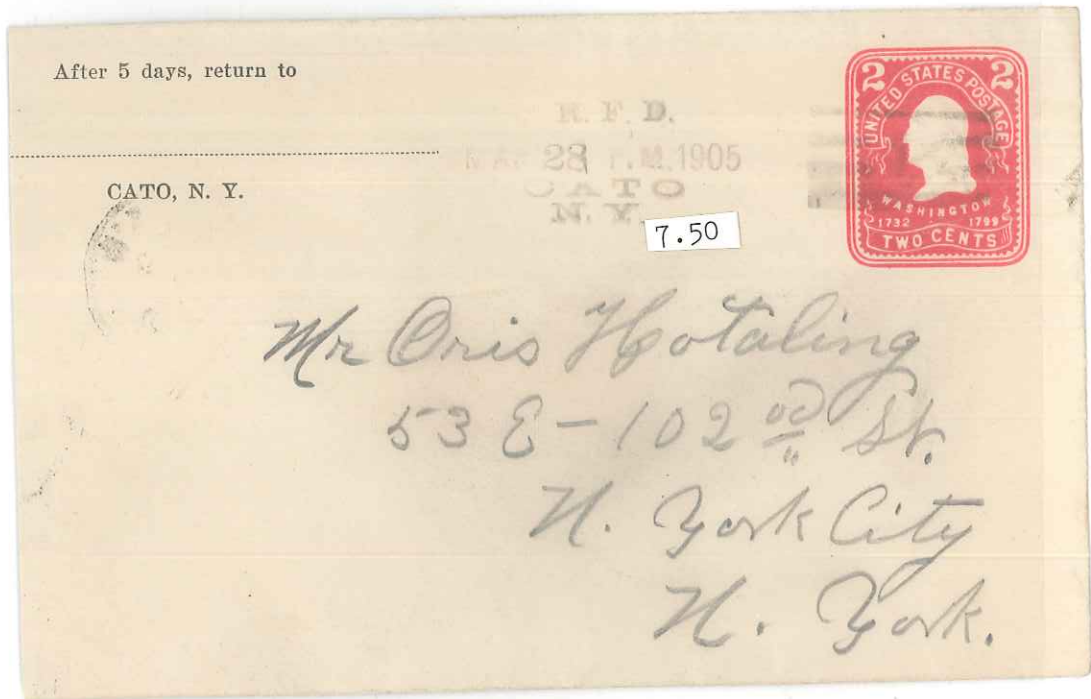 After 5 days, return to
CATO, N. Y.
R. F. D.
28 P.M. 1905
CATO
N. Y.
7.50
2 2
UNITED STATES POSTAGE
WASHINGTON
1732 1799
TWO CENTS
Mr Oris Hotaling
53 E - 102nd St.
N. York City
N. York.